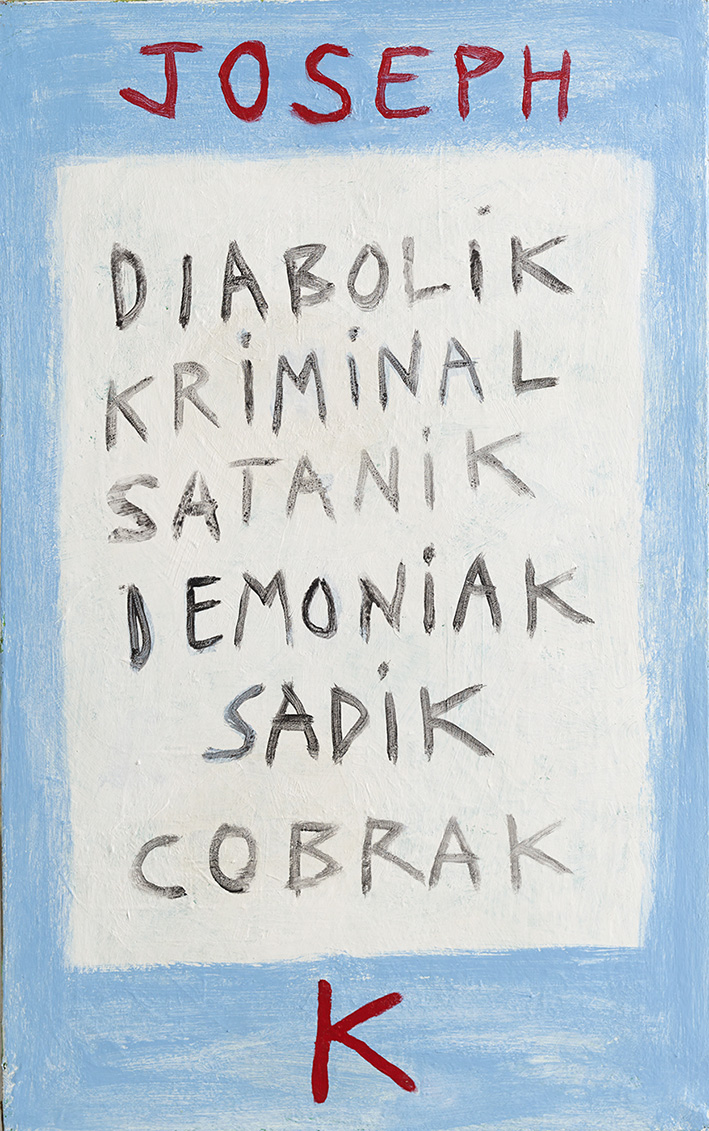 JOSEPH
DIABOLiK
KRiMiNAL
SATANiK
DEMONiAK
SADiK
COBRAK
K